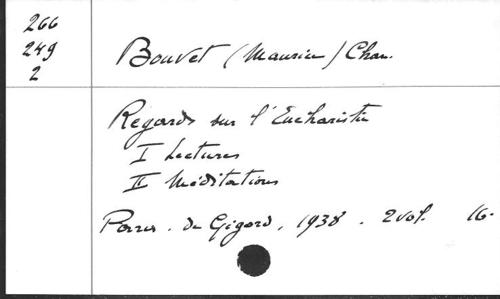 266
249
2
Bouvet (Maurice) Chan.
Regards sur l'Eucharistie
I Lectures
II Méditations
Paris. de Gigord, 1938. 2 vol. 16-